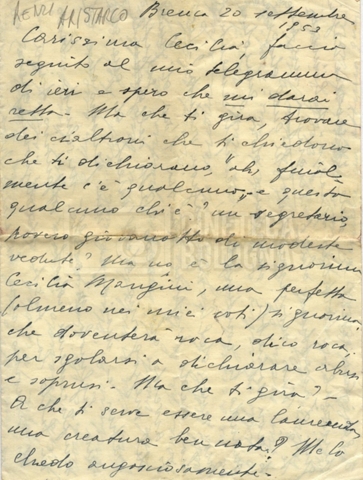 RENZI ARISTARCO
Brenca 20 settembre
1953
Carissima Cecilia, faccio
seguito al mio telegramma
di ieri e spero che mi darai
retta. Ma che ti gira, trovare
dei cialtroni che ti chiedono
che ti dichiarano, "ah, final-
mente c'è qualcuno", e questo
qualcuno chi è? un segretario,
povero giovanotto di modeste
vedute? Ma no è la signorina
Cecilia Mangini, una perfetta
(almeno nei miei voti) signorina
che doventerà roca, dico roca,
per sgolarsi a dichiarare abusi
e soprusi. Ma che ti gira?
A che ti serve essere una laureanda
una creatura ben nata? Me lo
chiedo angosciosamente.